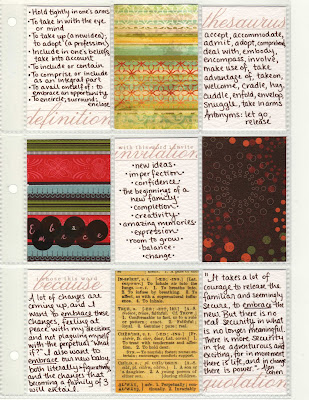 • Hold tightly in one's arms
• To take in with the eye
or mind
• To take up (a new idea);
to adopt (a profession)
• Include in one's beliefs;
take into account
• To include or contain
• To comprise or include
as an integral part
• To avail oneself of: to
embrace an opportunity
• To encircle; surround;
enclose
definition
thesaurus
accept, accommodate,
admit, adopt, comprehend,
deal with, embody,
encompass, involve,
make use of, take
advantage of, take on,
welcome, cradle, hug,
cuddle, enfold, envelop,
snuggle, take in arms
Antonyms: let go,
release
Embrace
with this word I invite
invitation
• new ideas •
• imperfection •
• confidence •
• the beginnings of a
new family •
• completion •
• creativity •
• amazing memories •
• expression •
• room to grow •
• balance •
• change •
I chose this word
because
A lot of changes are
coming up, and I
want to embrace those
changes, feeling at
peace with my decisions
and not plaguing myself
with the perpetual "what
if?" I also want to
embrace our new baby,
both literally + figuratively,
and the changes that
becoming a family of 3
will entail.
"It takes a lot of
courage to release the
familiar and seemingly
secure, to embrace the
new. But there is no
real security in what
is no longer meaningful.
There is more security
in the adventurous and
exciting, for in movement
there is life, and in change
there is power." - Alan
Cohen
quotation